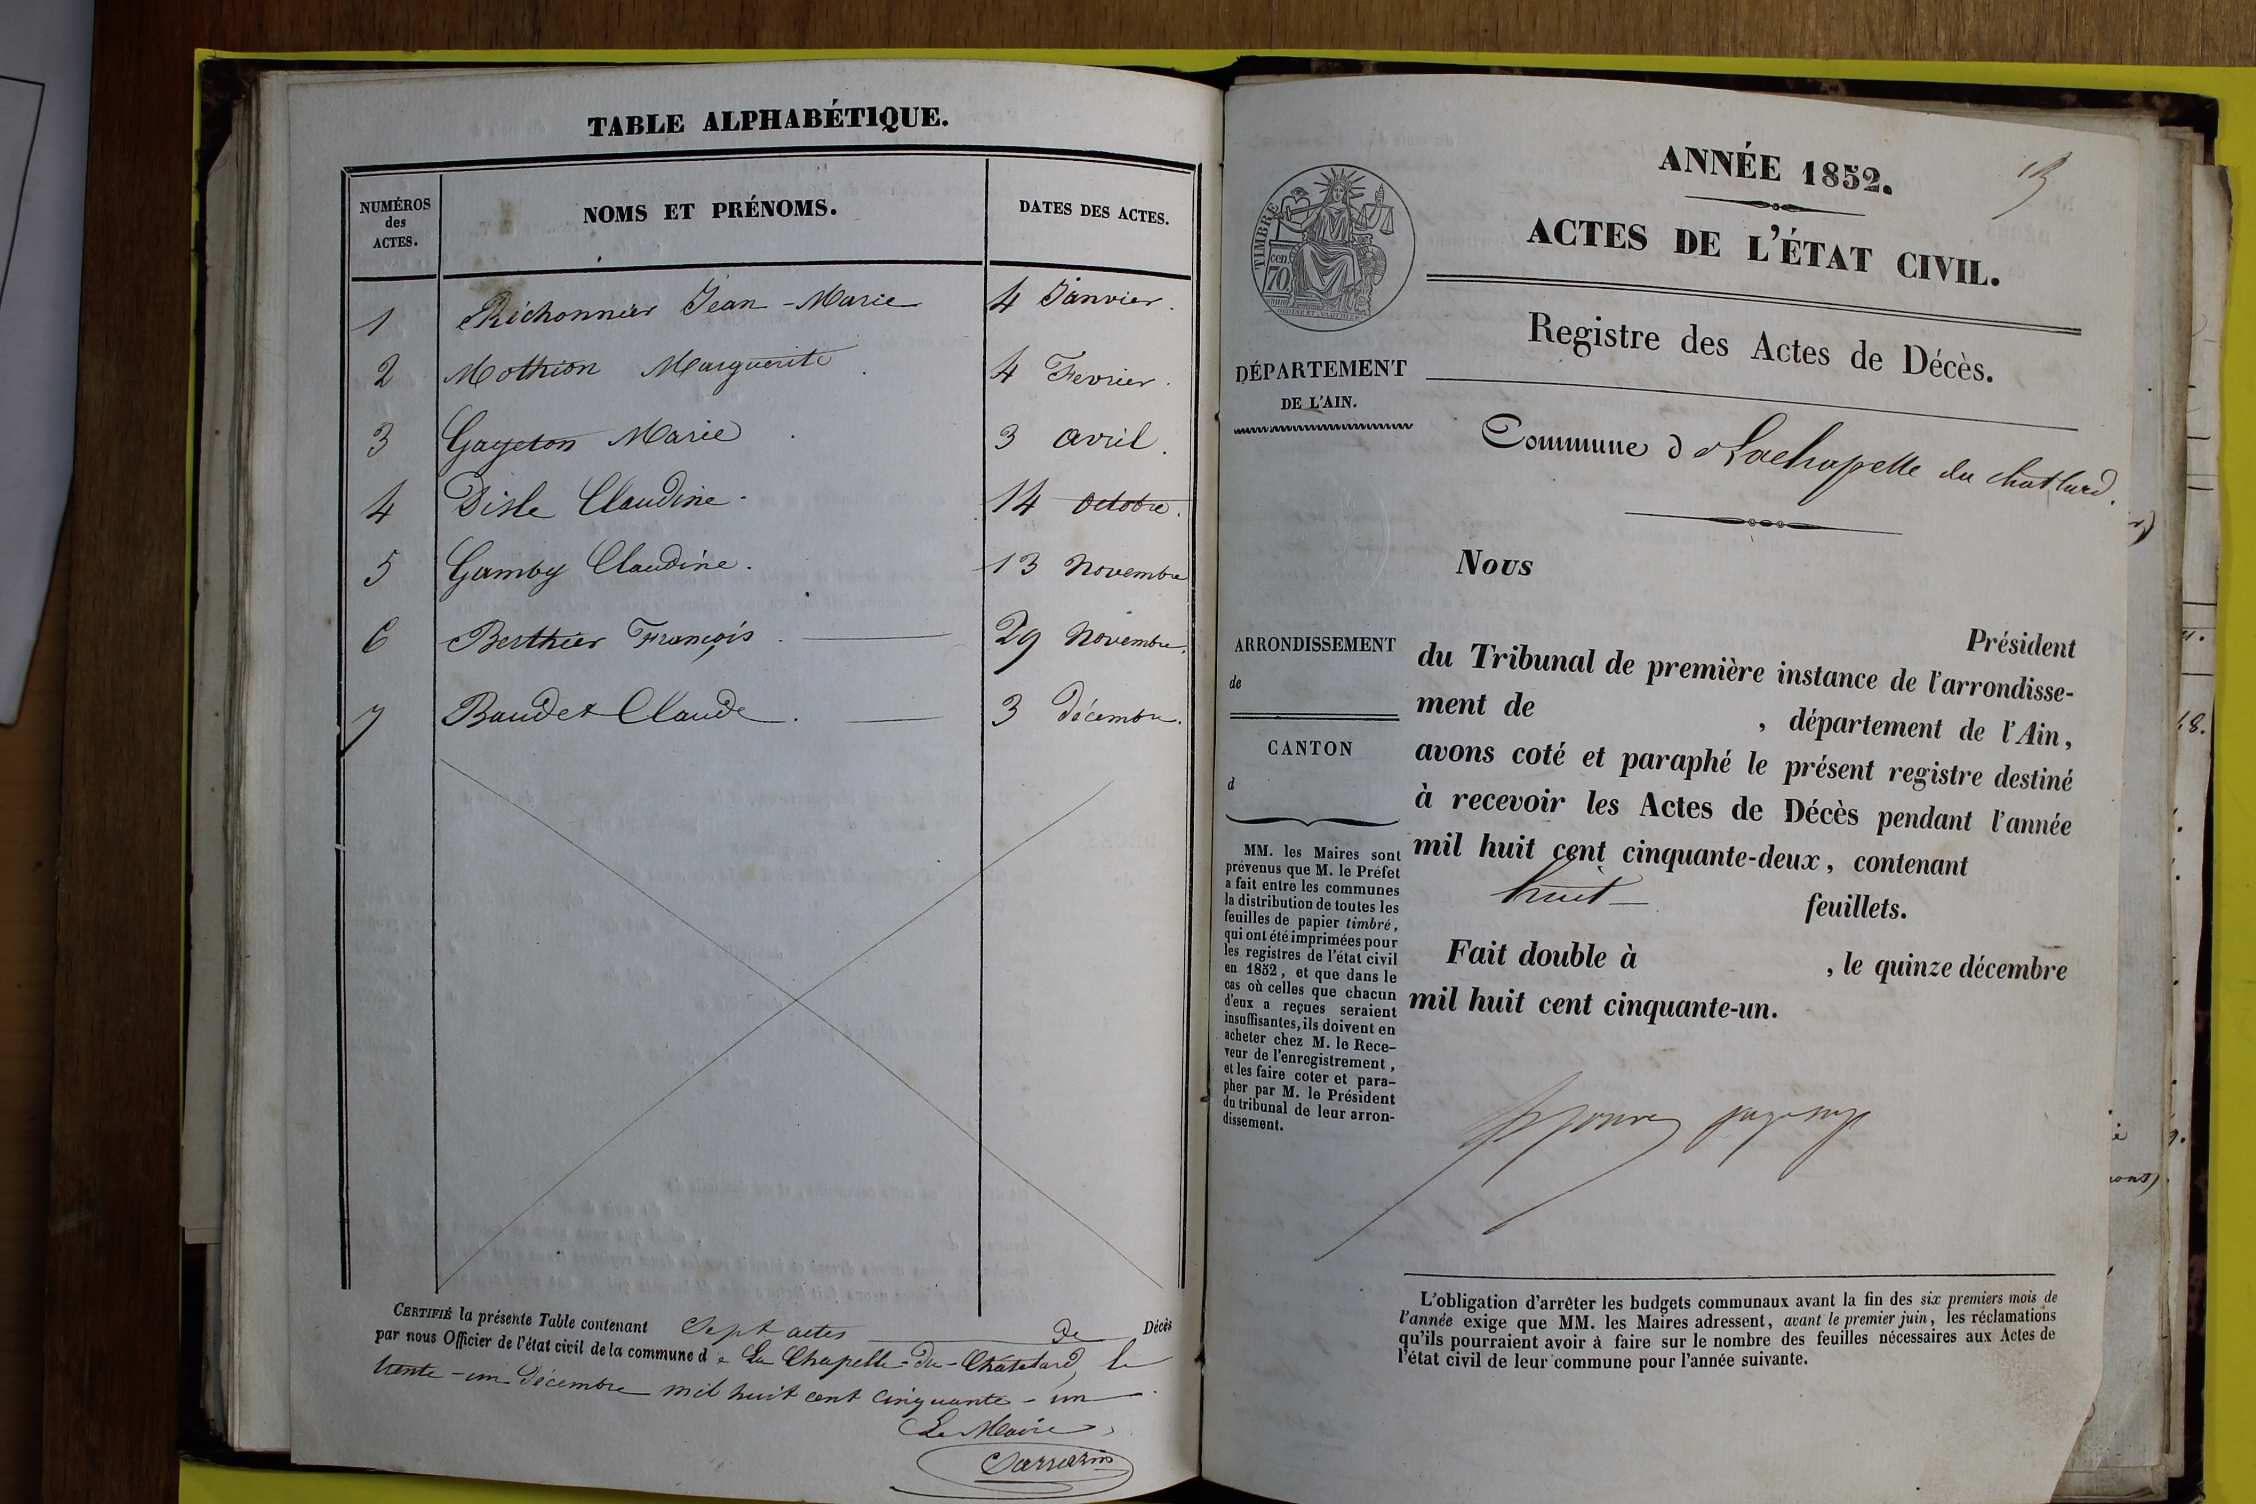 TABLE ALPHABÉTIQUE.
NUMÉROS
des
ACTES.
NOMS ET PRÉNOMS.
DATES DES ACTES.
1 Réchonnier Jean-Marie 4 Janvier.
2 Mothion Marguerite 4 Fevrier.
3 Gayeton Marie 3 avril.
4 Disle Claudine 14 octobre.
5 Gamby Claudine. 13 Novembre
6 Berthier François 29 Novembre.
7 Baudet Claude. 3 décembre.
CERTIFIÉ la présente Table contenant Sept actes de Décès
par nous Officier de l'état civil de la commune de La Chapelle-du-Châtelard, le
trente-un Décembre mil huit cent cinquante-un
Le Maire,
Sarrazin
ANNÉE 1852.
ACTES DE L'ÉTAT CIVIL.
Registre des Actes de Décès.
TIMBRE
cen
70
DÉPARTEMENT
DE L'AIN.
Commune d Lachapelle du chatlard.
Nous
Président
du Tribunal de première instance de l'arrondisse-
ment de , département de l'Ain,
avons coté et paraphé le présent registre destiné
à recevoir les Actes de Décès pendant l'année
mil huit cent cinquante-deux, contenant
huit feuillets.
Fait double à , le quinze décembre
mil huit cent cinquante-un.
ARRONDISSEMENT
de
CANTON
d
MM. les Maires sont
prévenus que M. le Préfet
a fait entre les communes
la distribution de toutes les
feuilles de papier timbré,
qui ont été imprimées pour
les registres de l'état civil
en 1852, et que dans le
cas où celles que chacun
d'eux a reçues seraient
insuffisantes, ils doivent en
acheter chez M. le Rece-
veur de l'enregistrement,
et les faire coter et para-
pher par M. le Président
du tribunal de leur arron-
dissement.
L'obligation d'arrêter les budgets communaux avant la fin des six premiers mois de
l'année exige que MM. les Maires adressent, avant le premier juin, les réclamations
qu'ils pourraient avoir à faire sur le nombre des feuilles nécessaires aux Actes de
l'état civil de leur commune pour l'année suivante.